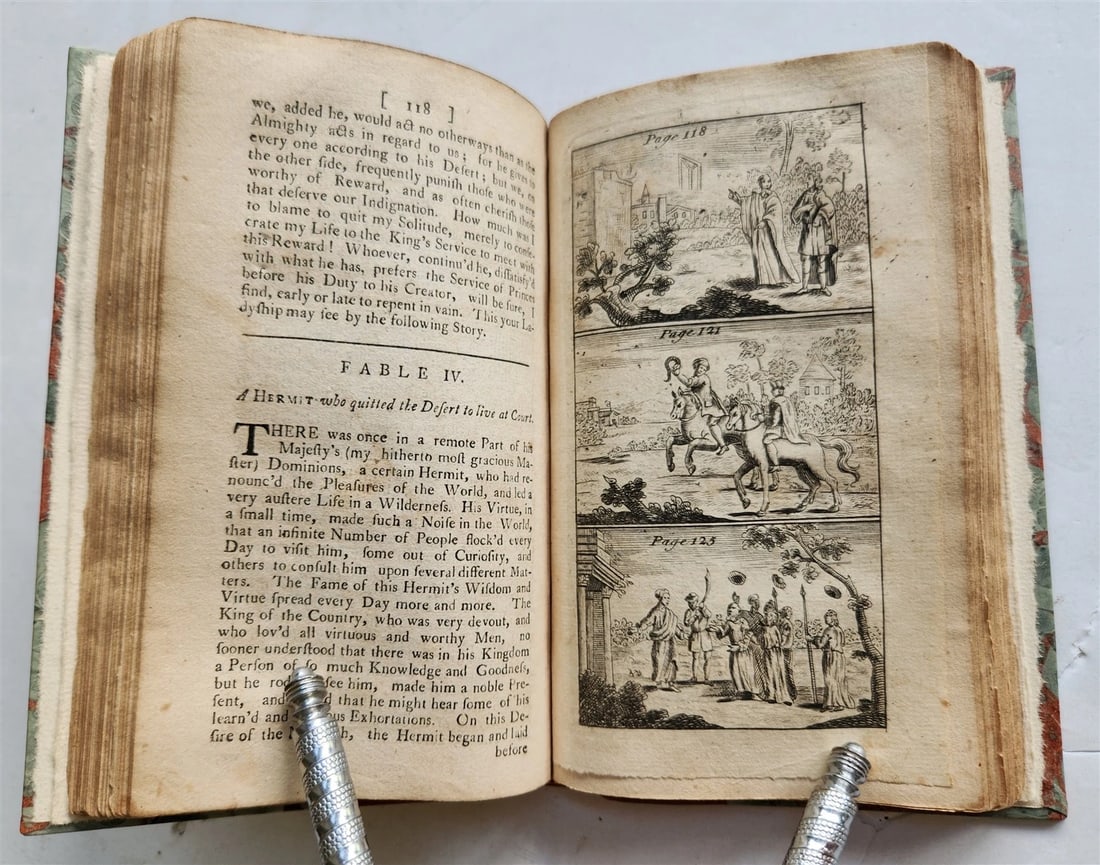 [ 118 ]
we, added he, would act no otherways than as the
Almighty acts in regard to us; for he gives to
every one according to his Desert; but we, on
the other ſide, frequently puniſh thoſe who were
worthy of Reward, and as often cheriſh thoſe
that deſerve our Indignation. How much was I
to blame to quit my Solitude, merely to conſe-
crate my Life to the King's Service to meet with
this Reward! Whoever, continu'd he, diſſatisfy'd
with what he has, prefers the Service of Princes
before his Duty to his Creator, will be ſure, I
find, early or late to repent in vain. This your La-
dyſhip may ſee by the following Story.
FABLE IV.
A HERMIT who quitted the Deſert to live at Court.
THERE was once in a remote Part of his
Majeſty's (my hitherto moſt gracious Ma-
ſter) Dominions, a certain Hermit, who had re-
nounc'd the Pleaſures of the World, and led a
very auſtere Life in a Wilderneſs. His Virtue, in
a ſmall time, made ſuch a Noiſe in the World,
that an infinite Number of People flock'd every
Day to viſit him, ſome out of Curioſity, and
others to conſult him upon ſeveral different Mat-
ters. The Fame of this Hermit's Wiſdom and
Virtue ſpread every Day more and more. The
King of the Country, who was very devout, and
who lov'd all virtuous and worthy Men, no
ſooner underſtood that there was in his Kingdom
a Perſon of ſo much Knowledge and Goodneſs,
but he ſee him, made him a noble Pre-
ſent, and that he might hear ſome of his
learn'd and Exhortations. On this De-
ſire of the the Hermit began and laid
before
Page 118
Page 121
Page 125